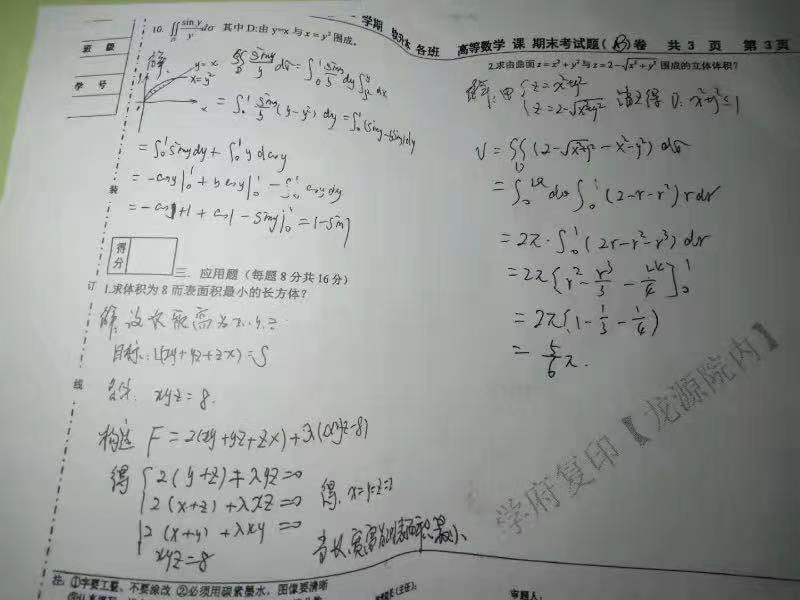 学期 各班 高等数学 课 期末考试题(B)卷 共 3 页 第 3 页
班 级
学 号
装
订
线
10. ∬_D (sin y / y) dσ 其中 D:由 y=x 与 x = y² 围成。
解:
y=x
x=y²
x
∬_D (sin y / y) dσ = ∫_0^1 (sin y / y) dy ∫_{y²}^{y} dx
= ∫_0^1 (sin y / y)(y-y²) dy = ∫_0^1 (sin y - y sin y) dy
= ∫_0^1 sin y dy + ∫_0^1 y d cos y
= -cos y |_0^1 + y cos y |_0^1 - ∫_0^1 cos y dy
= -cos 1 + 1 + cos 1 - sin y |_0^1 = 1 - sin 1
得
分
三. 应用题(每题 8 分共 16 分)
1.求体积为 8 而表面积最小的长方体?
解: 设长宽高为 x、y、z
目标: 2(xy+yz+zx)=S
xyz=8.
构造 F=2(xy+yz+zx)+λ(xyz-8)
得 { 2(y+z)+λyz=0
2(x+z)+λxz=0
2(x+y)+λxy=0
xyz=8
得: x=y=z=2
2.求由曲面 z = x² + y² 与 z = 2 - √(x² + y²) 围成的立体体积?
解: 由 { z=x²+y²
z=2-√(x²+y²) 消 z 得 D: x²+y² ≤ 1
V = ∬_D (2-√(x²+y²)-x²-y²) dσ
= ∫_0^{2π} dθ ∫_0^1 (2-r-r²) r dr
= 2π·∫_0^1 (2r-r²-r³) dr
= 2π [r² - r³/3 - r⁴/4]_0^1
= 2π(1 - 1/3 - 1/4)
= 5/6 π.
学府复印【龙源院内】
注: ①字要工整、不要涂改 ②必须用碳素墨水,图像要清晰
(主任):
审题人: